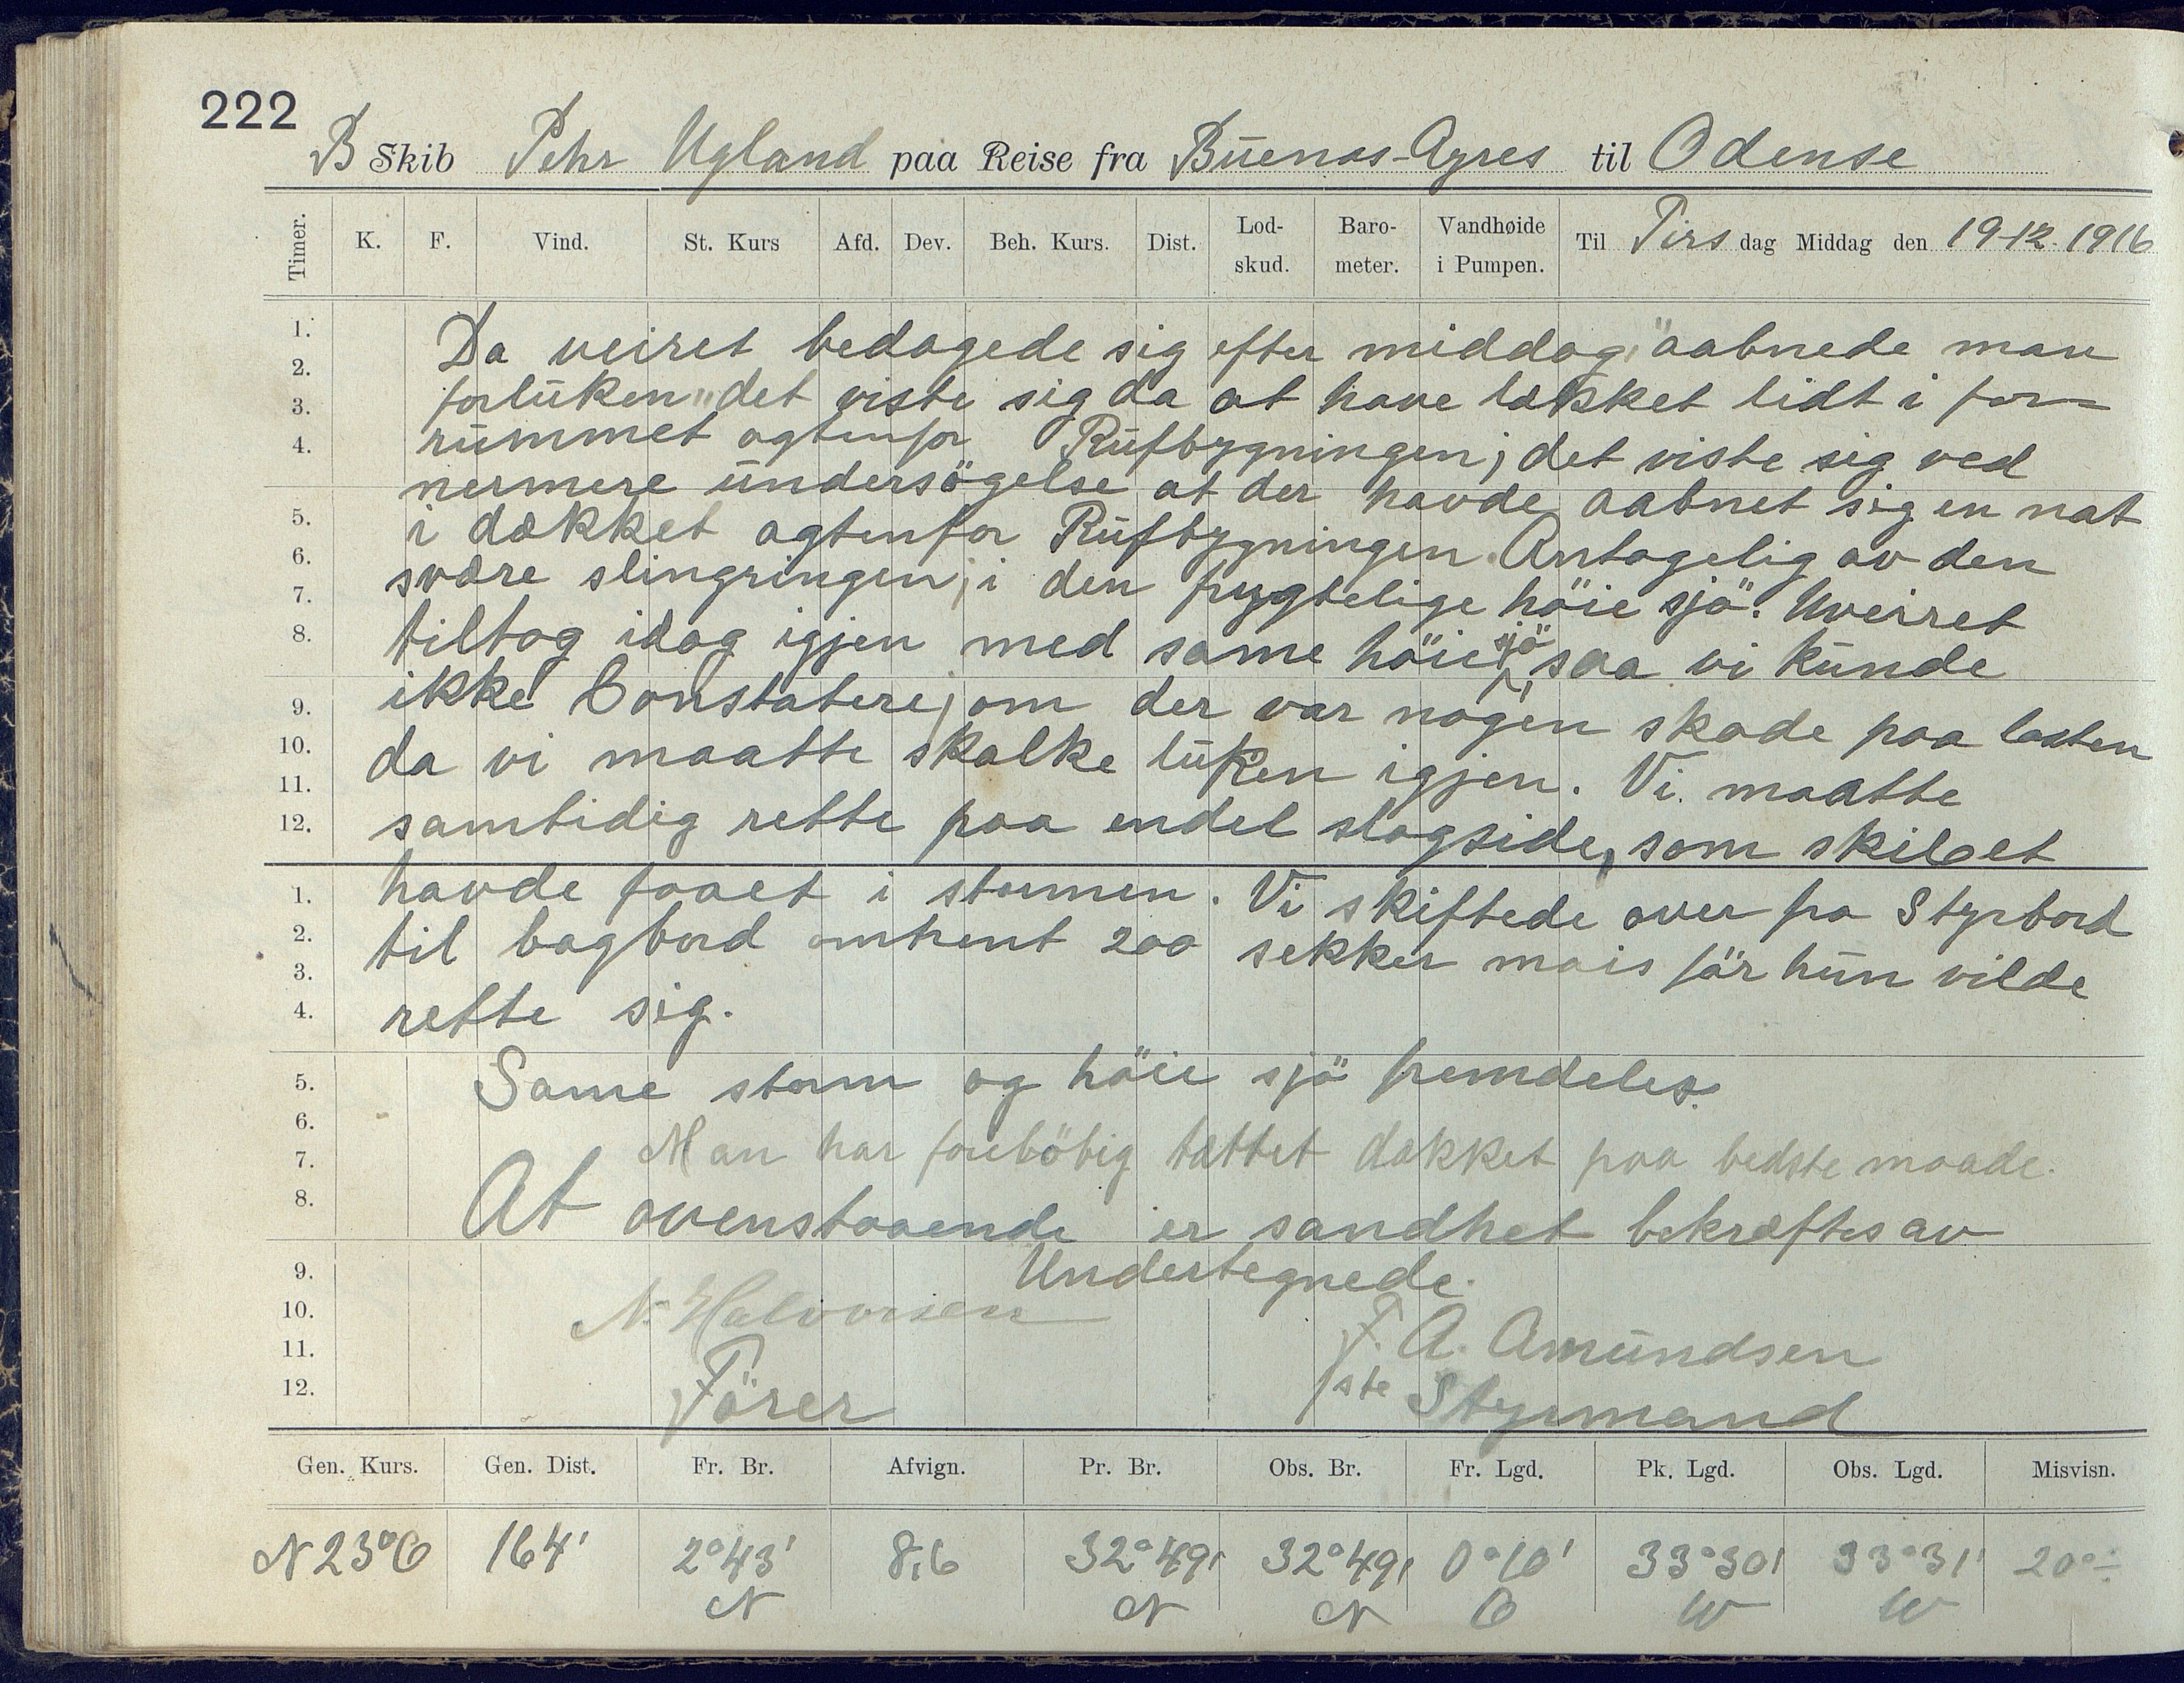 222
B Skib Pehr Ugland paa Reise fra Buenos-Ayres til Odense
Timer. K. F. Vind. St. Kurs Afd. Dev. Beh. Kurs. Dist. Lod-skud. Baro-meter. Vandhøide i Pumpen. Til Tirsdag Middag den 19-12-1916
1.
2.
3.
4.
5.
6.
7.
8.
9.
10.
11.
12.
1.
2.
3.
4.
5.
6.
7.
8.
9.
10.
11.
12.
Da veiret bedagede sig efter middag, aabnede man
forluken, det viste sig da at have lækket lidt i for=
rummet agtenfor Rufbygningen; det viste sig ved
nermere undersögelse at der havde aabnet sig en nat
i dækket agtenfor Rufbygningen. Antagelig av den
svære slingringen, i den frygtelige höie sjö. Uveiret
tiltog idag igjen med same höie sjö, saa vi kunde
ikke Constatere, om der var nogen skade paa lasten
da vi maatte skalke luken igjen. Vi maatte
samtidig rette paa endel slagside, som skibet
havde faaet i stormen. Vi skiftede over fra Styrbord
til bagbord omtrent 200 sekker mais för hun vilde
rette sig.
Same storm og höie sjö fremdeles.
Man har forelöbig tættet dækket paa bedste maade.
At ovenstaaende er sandhet bekræftes av
Undertegnede.
N. Halvorsen
Förer
F. A. Amundsen
1ste Styrmand
Gen. Kurs. Gen. Dist. Fr. Br. Afvign. Pr. Br. Obs. Br. Fr. Lgd. Pk. Lgd. Obs. Lgd. Misvisn.
N 23° O 164' 2°43' N 8,6 32°49' N 32°49' N 0°10' O 33°30' W 33°31' W 20°÷